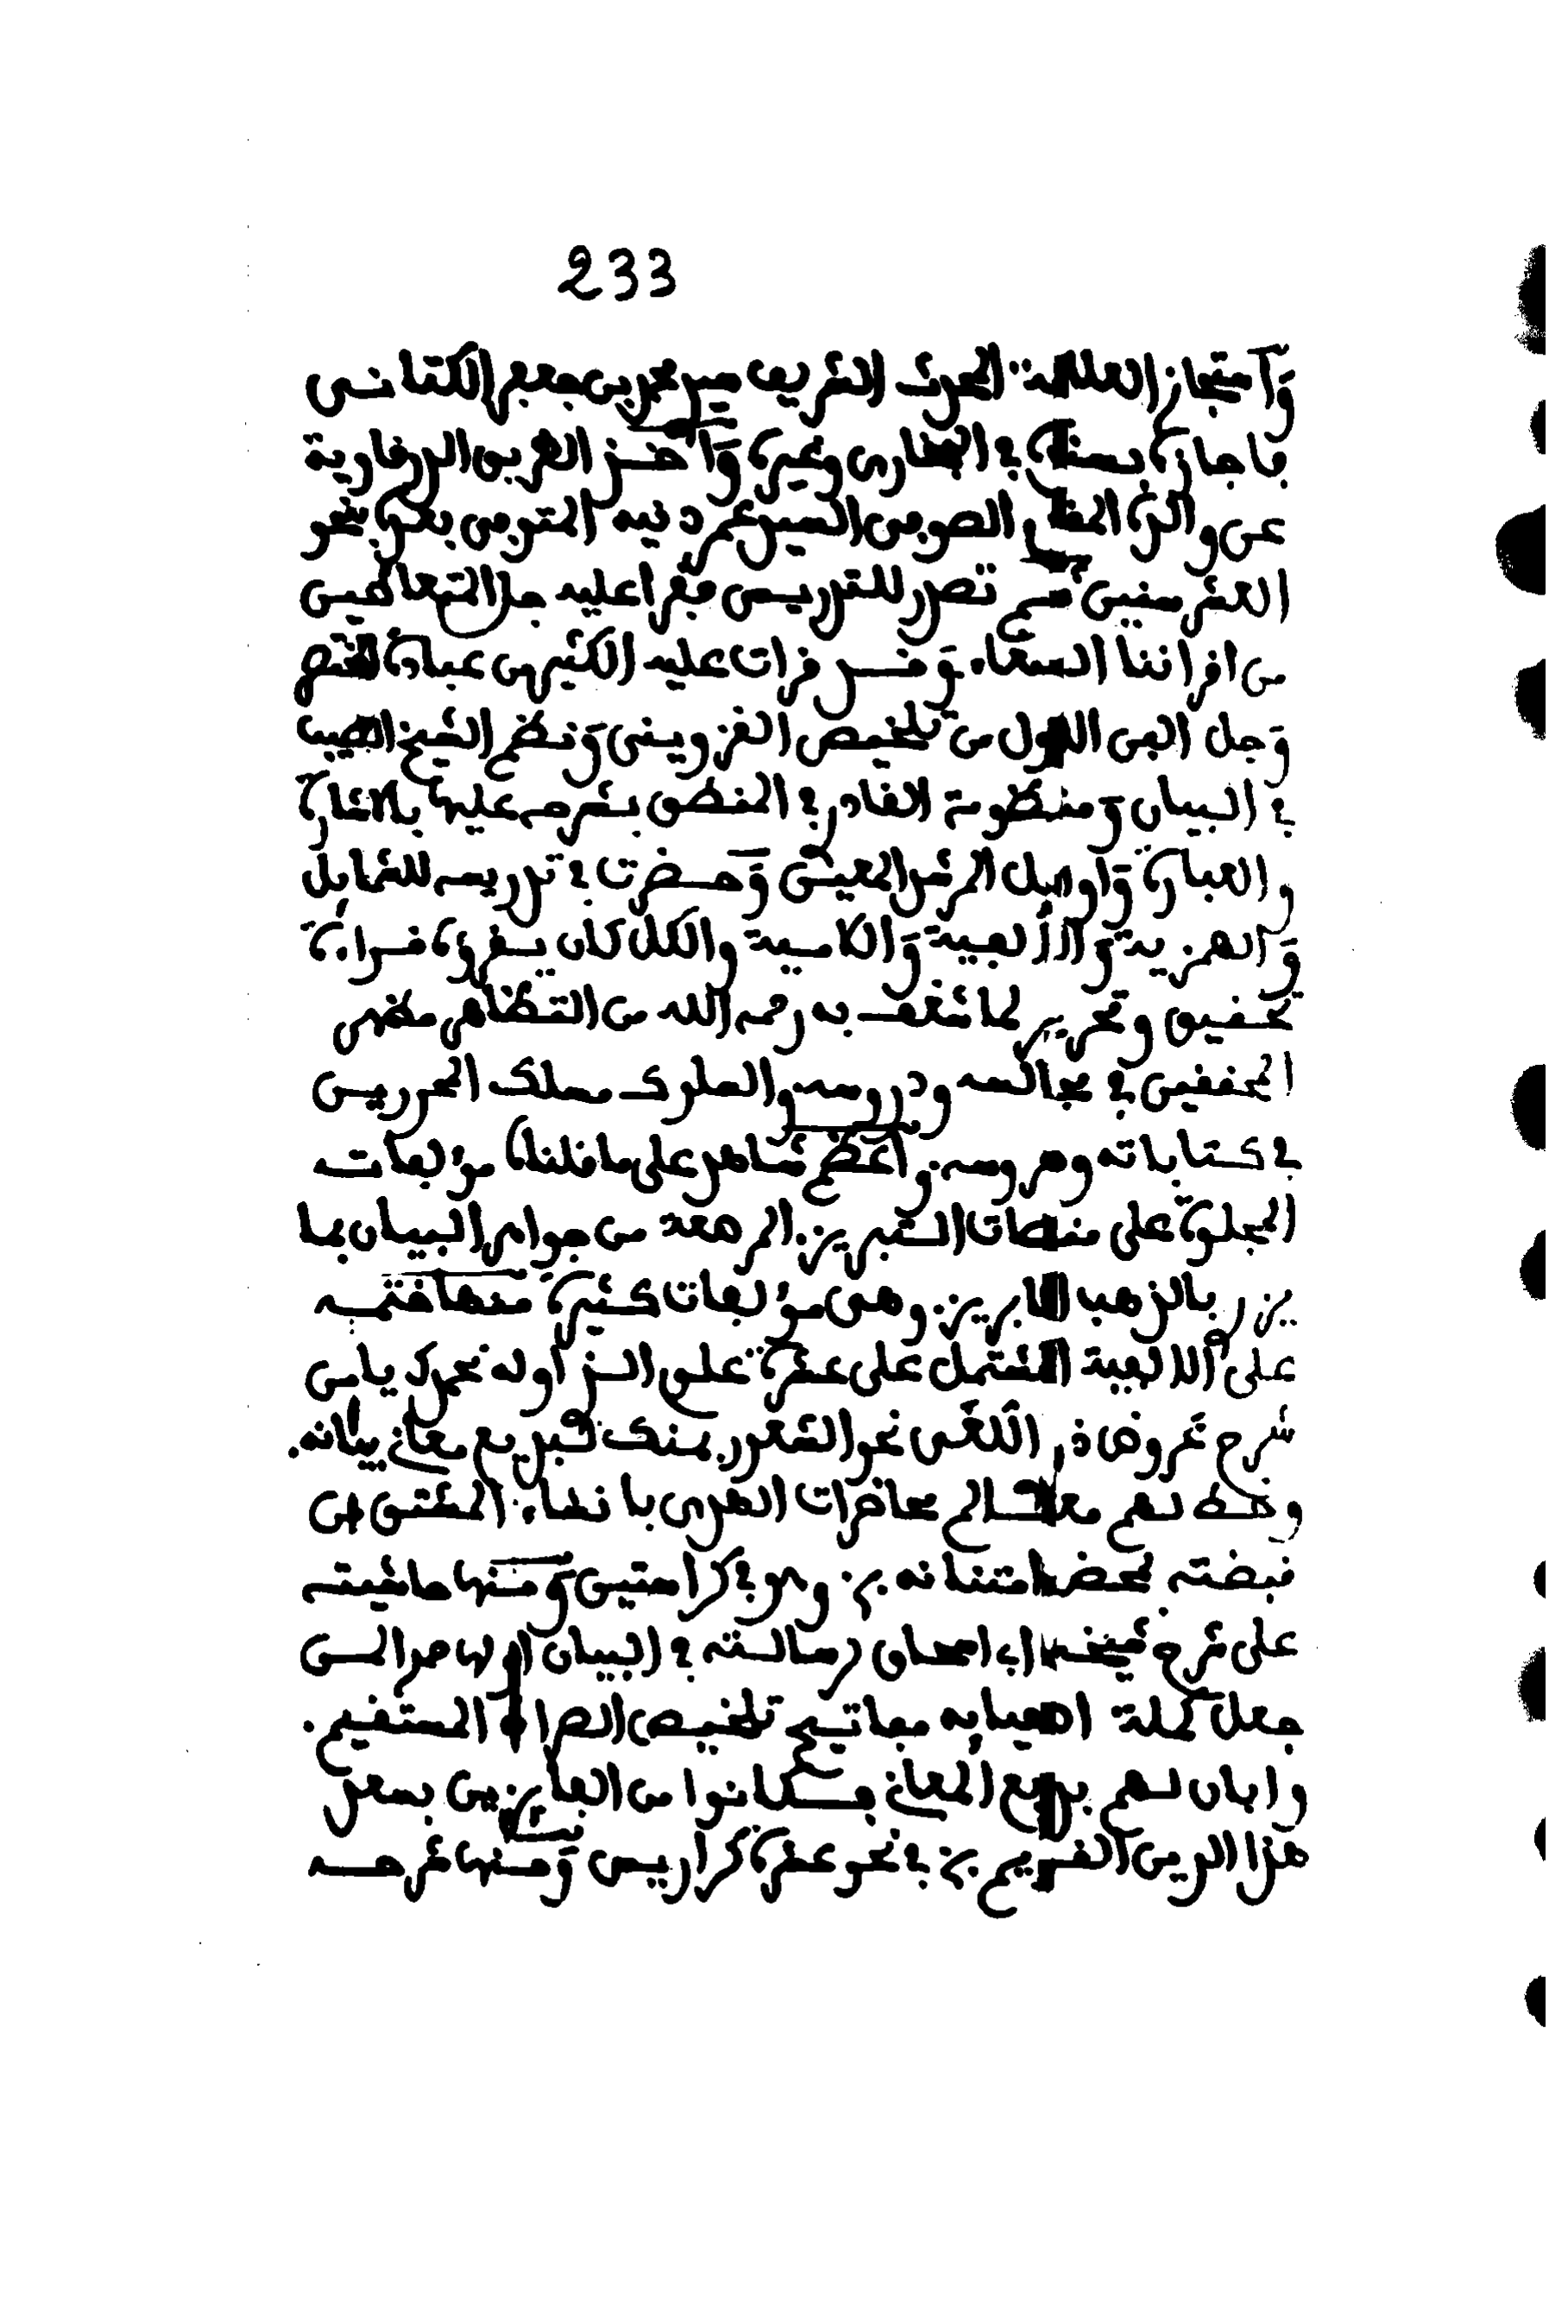 233
وَاستجاز العلامة المحدث الشريف سيدي محمد بن جعفر الكتاني
فأجازه بسنده في البخاري وغيره وَأخذ الطريق الدرقاوية
عن والده الصوفي السيد عمر دفينه المتوفى بعده بنحو
العشر سنين ثم تصدر للتدريس فقرأ عليه جل المتعاطين
من اقراننا السعاء وَقد قرات عليه الكثير من عبادة المختصر
وَجل الفن الاول من تلخيص القزويني وَنظم الشيخ الطيب
في البيان وَمنظومة القادري في المنطق بشرحه عليها بالاشارة
والعبارة وَاوايل المرشد المعين وَحضرت في تدريسه للشمايل
وَالهمزية وَالألفية وَاللامية والكل كان يقرؤه قراءة
تحقيق وتحرير لما شغف به رحمه الله من التظاهر مظهر
المحققين في مجالسه ودروسه والسلوك مسلك المحررين
في كتاباته وطروسه. وأعظم شاهد على ما قلناه مؤلفات
المجلوة على منصات التبريز. المرصعة من جواهر البيان بما
يزري بالذهب الابريز. وهي مؤلفات كثيرة منها ختمه
على الالفية المشتمل على عشرة علوم الذي اوله نحمدك يا من
شرح عروض ذوي اللغى نحو الشعور بمنطق بديع معاني بيانه.
وخط لهم معالم محاضرات الهدى بانشاء المشتق من
نبضته لمحض امتنانه .: وهو في كراستين وَمنها حاشيته
على شرح شيخه ابي اسحاق رسالته في البيان اولها حمدا لمن
جعل كملة اصفيايه مفاتيح تلخيص الصراط المستقيم.
وابان لهم بديع المعاني فكانوا من الفايزين بسعد
هذا الدين القويم .: في نحو عشرة كراريس وَمنها شرحه